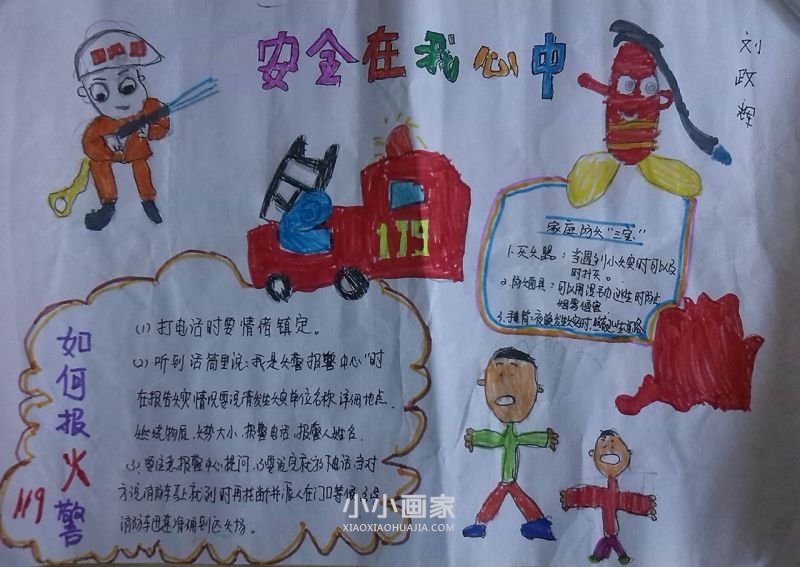 安全在我心中
刘政辉
119
家庭防火"三宝"
1.灭火器：当遇到小火灾时可以及
时扑灭。
2.防烟面具：可以用
3.
如何报火警
119
(1) 打电话时要情绪镇定。
(2) 听到话筒里说："我是火警报警中心"时
在报告火灾情况要说清发生火灾单位名称详细地点.
燃烧物质.火势大小.报警电话.报警人姓名.
(3) 要注意报警中心提问,
方说消防车马上就到时再挂断并派人在门口等候
消防车迅速准确到达火场。
小小画家
XIAOXIAOHUAJIA.COM